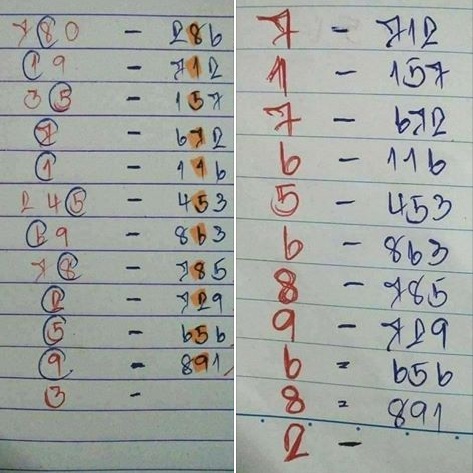 780 - 286
19 - 712
35 - 157
7 - 672
1 - 116
245 - 453
69 - 863
78 - 785
2 - 729
5 - 656
9 - 891
3 -
7 - 712
1 - 157
7 - 672
6 - 116
5 - 453
6 - 863
8 - 785
9 - 729
6 = 656
8 = 891
2 -